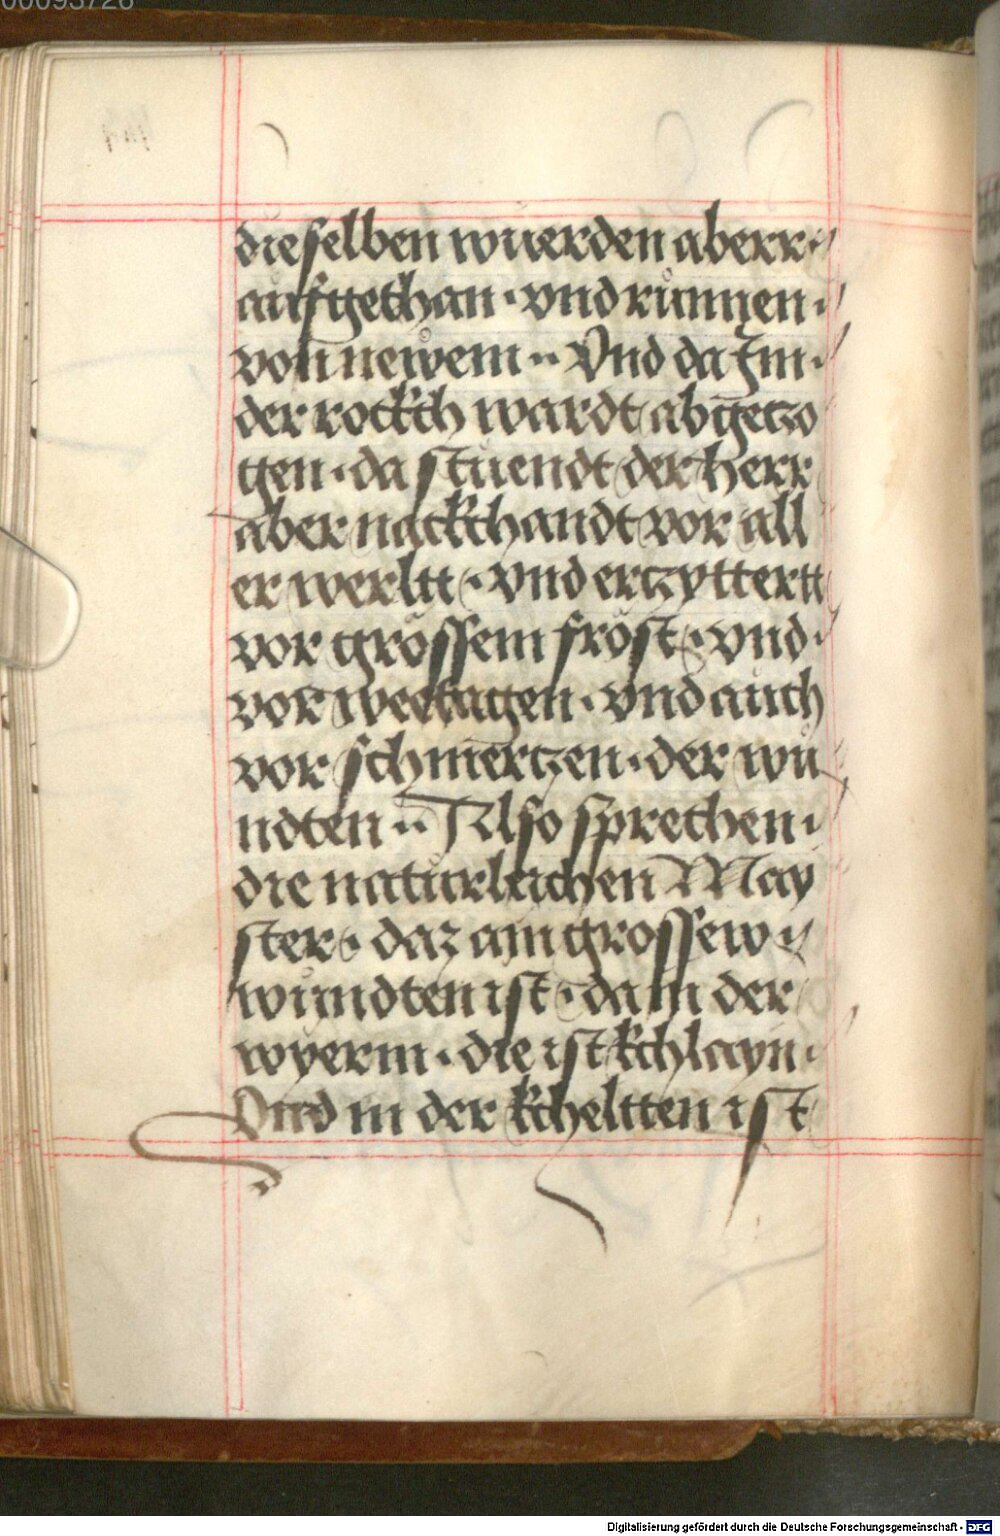 00093726
dieselben wuerden aberr·
aufgethan · vnd rúnnen ·
von newem ·· Vnd da Im ·
der rockch wardt abgetzo
gen · da stuendt der herr
aber nackchandt vor all
er werltt · vnd ertzyttertt
vor grossem frost · vnd ·
vor weetagen · vnd auch
vor schmertzen · der wu
ndten ·· Also sprechen ·
die naturleichen May
ster · daz ain grossew ··
wundten ist · da in der
wyerm · die ist kchlayn ·
Vnd in der kcheltten ist
Digitalisierung gefördert durch die Deutsche Forschungsgemeinschaft - DFG